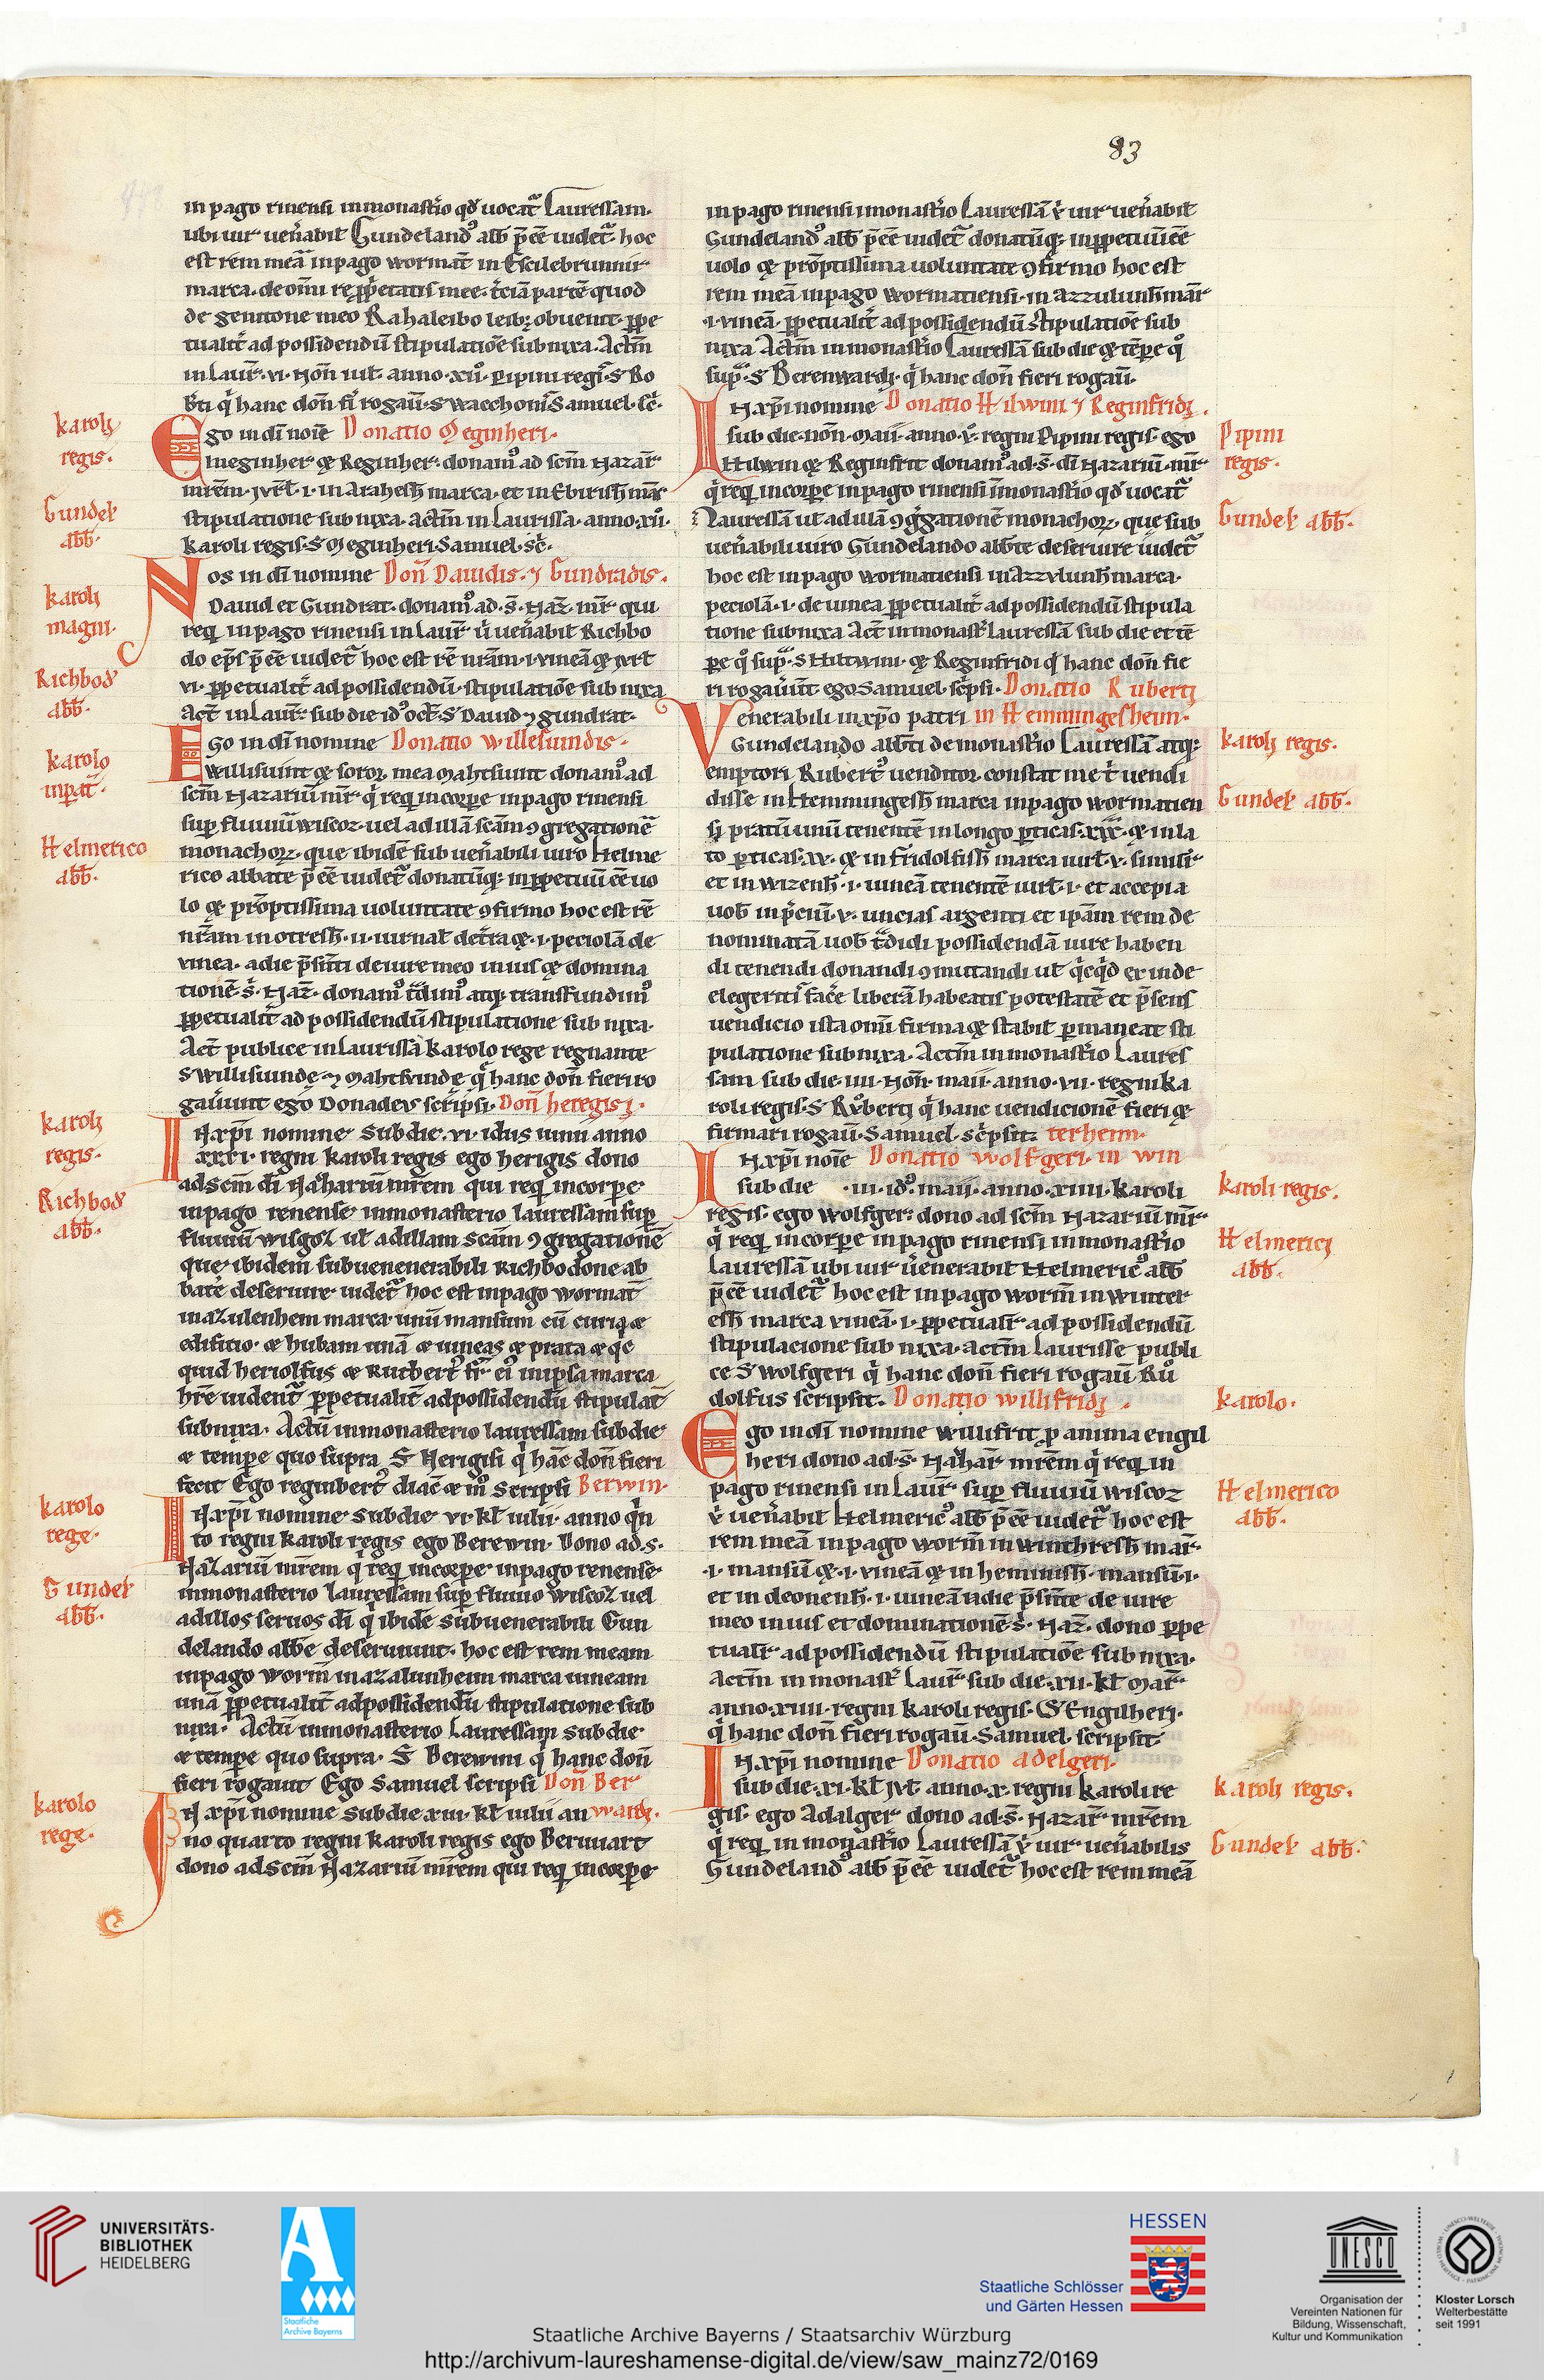 83
in pago rinensi inmonastr̄io qd̄ uocat᷑ Lauressam.
ubi uir uen̄abil̄ Gundeland᷒ abb̄ p̄eē uidet᷑. hoc
est rem meā inpago wormat̄ in Escilebrunnir
marca. de om̄i rep̄p̄etatis mee. t̄ciā partē quod
de genitone meo Rahaleibo leib; obuenit. ꝑpe
tualit̄ ad possidendū stipulatiōe subnixa. Actm̄
in laur̄. vi. non̄ iul̄. anno. xii᷒. pipini regis̄. S Ro
bti q̇ hanc don̄ fi rogau̅. S wacchonis̄ Samuel. sc̄.
Ego in dī noīe Donatio Meginheri.
Meginher & Reginher. donam᷒ ad scm̄ Nazar̄
mrēm. jvrl̄. i. in Arahesh̄ marca. et in Ebirish̄ mar̄
stipulatione sub nixa. actm̄ in Laurissa. anno. xii᷒.
karoli regis. S Meginheri. Samuel. sc̄.
Nos in dī nomine Don̄ Dauidis. ⁊ Gundradis.
Dauid et Gundrat. donam᷒ ad. s̄. Naz̄. mr̄ qui
req̄ inpago rinensi in laur̄ u̇ uen̄abil̄ Richbo
do ep̄s p̄eē uidet᷑ hoc est rē nr̄am. i. vineā & jvrl̄
vi. ꝑpetualit̄ ad possidendū. stipulatiōe sub nixa
Act̄ in laur̄. sub die id᷒ oct̄. S Dauid ⁊ gundrat.
Ego in dī nomine Donatio willesuindis.
Willisuint & soror mea Mahtsuint donam᷒ ad
scm̄ Nazariū mr̄ q̇ req̄ incorꝑe inpago rinensi
suꝑ fluuiū wiscoz. uel ad illā scām ꝯgregationē
monachoꝝ. que ibidē sub uen̄abili uiro Helme
rico abbate p̄eē uidet᷑ donatūq; inꝑpetuū eē uo
lo & prōptissima uoluntate ꝯfirmo hoc est rē
nr̄am in otresh̄. ii. iurnal̄ de t̄ra &. i. peciolā de
vinea. a die p̄sn̄ti de iure meo in ius & domina
tionē s̄. Naz̄. donam᷒ tᷓdim᷒ atq; transfundim᷒
ꝑpetualit̄ ad possidendū stipulatione sub nixa.
Act̄ publice in laurissā karolo rege regnante
S willisuinde ⁊ Mahtsuinde q̇ hanc don̄ fieri ro
gaueunt ego Donadeus scripsi. Don̄ heregisi.
In xp̄i nomine sub die. vi. idus iunii anno
xxxi. regni karoli regis ego herigis dono
ad scm̄ dī Nazariū mr̄em qui req̄ incorꝑe
inpago renense inmonasterio lauressam suꝑ
fluuiū wisgoz ul̄ ad illam scām ꝯgregationē
que ibidem sub uenenerabili Richbodone ab
bate deseruire uidet᷑ hoc est inpago wormat̄
in azulenhem marca unū mansum cū curia &
edificio. & hubam unā & uineas & prata & qc
quid heriolfus & Rutbert᷒ fr̄ ei᷒ in ipsa marca
hr̄e uident᷑ ꝑpetualit̄ ad possidendū stipulat̄
subnixa. Actū inmonasterio lauressam sub die
& tempe quo supra S Herigisi q̇ hāc don̄ fieri
fecit Ego reginbert᷒ diac̄ & m᷒ scripsi Berwin.
In xp̄i nomine sub die vi. kl̄ iulii. anno q̇n
to regni karoli regis ego Berewin. Dono ad. s.
Nazariū mr̄em q̇ req̄ incorꝑe inpago renense
inmonasterio lauressam suꝑ fluuio wiscoz uel
ad illos seruos dī q̇ ibidē sub uenerabili Gun
delando abb̄e deseruiunt. hoc est rem meam
inpago worm̄ in azalunheim marca uineam
unā ꝑpetualit̄ ad possidendū stipulatione sub
nixa. Actū inmonasterio lauressam sub die
& tempe quo supra. S Berewini q̇ hanc don̄
fieri rogauit Ego Samuel scripsi Don̄ Ber
In xp̄i nomine sub die xiii. kl̄ iulii an wardi.
no quarto regni karoli regis ego Beruuart
dono ad scm̄ Nazariū mr̄em qui req̄ incorꝑe
karoli
regis.
Gundel̄
abb̄.
karoli
magni.
Richbod᷒
abb̄.
karolo
inpat̄.
Helmerico
abb̄.
karoli
regis.
Richbod᷒
abb̄.
karolo
rege.
Gundel̄
abb̄.
karolo
rege.
in pago rinensi īmonastr̄io Lauressā u̇ uir uen̄abil̄
Gundeland᷒ abb̄ p̄eē uidet᷑ donatūq; inꝑpetuū eē
uolo & prōptissima uoluntate ꝯfirmo hoc est
rem meā inpago wormatiensi. in Azzulunh̄ mar̄
.i. vineā. ꝑpetualit̄ ad possidendū stipulatiōe sub
nixa Actm̄ in monastr̄io Lauressā sub die & tēꝑe q᷒
supᷓ. S Berenwardi. q̇ hanc don̄ fieri rogau̅.
In xp̄i nomine Donatio Hilwini ⁊ Reginfridi.
sub die. non̄. maii. anno. v. regni Pipini regis. ego
Hilwin & Reginfrit donam᷒ ad. s̄. dī Nazariū. mr̄
q̇ req̄ incorꝑe inpago rinensi īmonastr̄io qd̄ uocat᷑
Lauressā ul̄ ad illā ꝯgregationē monachoꝝ. que sub
uen̄abili uiro Gundelando abb̄te deseruire uidet᷑
hoc est inpago wormatiensi in Azzulunh̄ marca.
peciolā. i. de uinea ꝑpetualit̄ ad possidendū stipula
tione subnixa Act̄ inmonastr̄ lauressā sub die et tē
ꝑe q᷒ supᷓ. S Hiltwini. & Reginfridi q̇ hanc don̄ fie
ri rogauūt ego Samuel sc̄psi. Donatio Ruberti
Venerabili in xp̄o patri in Hemmingesheim.
Gundelando abb̄ti de monastr̄io Lauressā atq;
emptori Rubert᷒ uenditor. constat me t̄ uendi
disse in Hemmingesh̄ marca inpago wormatien
si pratū unū tenentē in longo ꝑticas. xxx. & in la
to ꝑticas. xv. & in fridolfish̄ marca iurl̄. v. similit̄
et in wizenh̄. i. uineā tenentē iurl̄. i. et accepi a
uob̄ in p̄ciū. v. uncias argenti et ipam̄ rem de
nominatā uob̄ tᷓdidi possidendā iure haben
di tenendi donandi ꝯmutandi ul̄ q̇cq̇d ex inde
elegeritis̄ facē liberā habeatis potestatē et p̄sens
uendicio ista om̄i firma & stabil̄ ꝑmaneat sti
pulatione subnixa. Actm̄ inmonastr̄io Laures
sam sub die. iiii. Non̄. maii. anno. vii. regni ka
roli regis. S Ruberti q̇ hanc uendicionē fieri &
firmari rogau̅. Samuel sc̄psit. terheim.
In xp̄i noīe Donatio wolfgeri. in win
sub die .iii. id᷒. maii. anno. xiiii. karoli
regis. ego wolfger. dono ad scm̄ Nazariū mr̄
q̇ req̄ incorꝑe inpago rinensi inmonastr̄io
Lauressā ubi uir uenerabil̄ Helmeric᷒ abb̄
p̄eē uidet᷑ hoc est inpago worm̄ in winter
esh̄ marca vineā. i. ꝑpetualit̄ ad possidendū
stipulacione sub nixa. actm̄ Laurisse publi
ce S wolfgeri q̇ hanc don̄ fieri rogau̅ Ru
dolfus scripsit. Donatio willifridi.
Ego in dī nomine willifrit ꝑ anima engil
heri dono ad. s̄. Nazar̄ mr̄em q̇ req̄ in
pago rinensi in laur̄ suꝑ fluuiū wiscoz
u̇ uen̄abil̄ Helmeric᷒ abb̄ p̄eē uidet᷑ hoc est
rem meā inpago worm̄ in winthresh̄ mar̄.
.i. mansū &. i. vineā & in heminish̄. mansū. i.
et in deonenh̄. i. uineā adie p̄sn̄te de iure
meo in ius et dominationē s̄. Naz̄. dono ꝑpe
tualit̄ ad possidendū stipulatiōe sub nixa.
Actm̄ in monast̄ Laur̄ sub die. xii. kl̄ mar̄
anno. xiiii. regni karoli regis. S Engilheri.
q̇ hanc don̄ fieri rogau̅. Samuel. scripsit
In xp̄i nomine Donatio adelgeri.
sub die. xi. kl̄ jvl̄ anno. x. regni karoli re
gis. ego Adalger dono ad. s̄. Nazar̄ mr̄em
q̇ req̄ in monastr̄io Lauressā u̇ uir uen̄abilis
Gundeland᷒ abb̄ p̄eē uidet᷑ hoc est rem meā
Pipini
regis.
Gundel̄ abb̄.
karoli regis.
Gundel̄ abb̄.
karoli regis.
Helmerici
abb̄.
karolo.
Helmerico
abb̄.
karoli regis.
Gundel̄ abb̄.
UNIVERSITÄTS-
BIBLIOTHEK
HEIDELBERG
A
Staatliche
Archive Bayerns
Staatliche Schlösser
und Gärten Hessen
HESSEN
UNESCO
Organisation der
Vereinten Nationen für
Bildung, Wissenschaft,
Kultur und Kommunikation
Kloster Lorsch
Welterbestätte
seit 1991
Staatliche Archive Bayerns / Staatsarchiv Würzburg
http://archivum-laureshamense-digital.de/view/saw_mainz72/0169